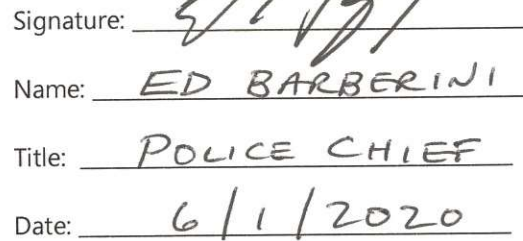 Signature:
Name: ED BARBERINI
Title: POLICE CHIEF
Date: 6/1/2020